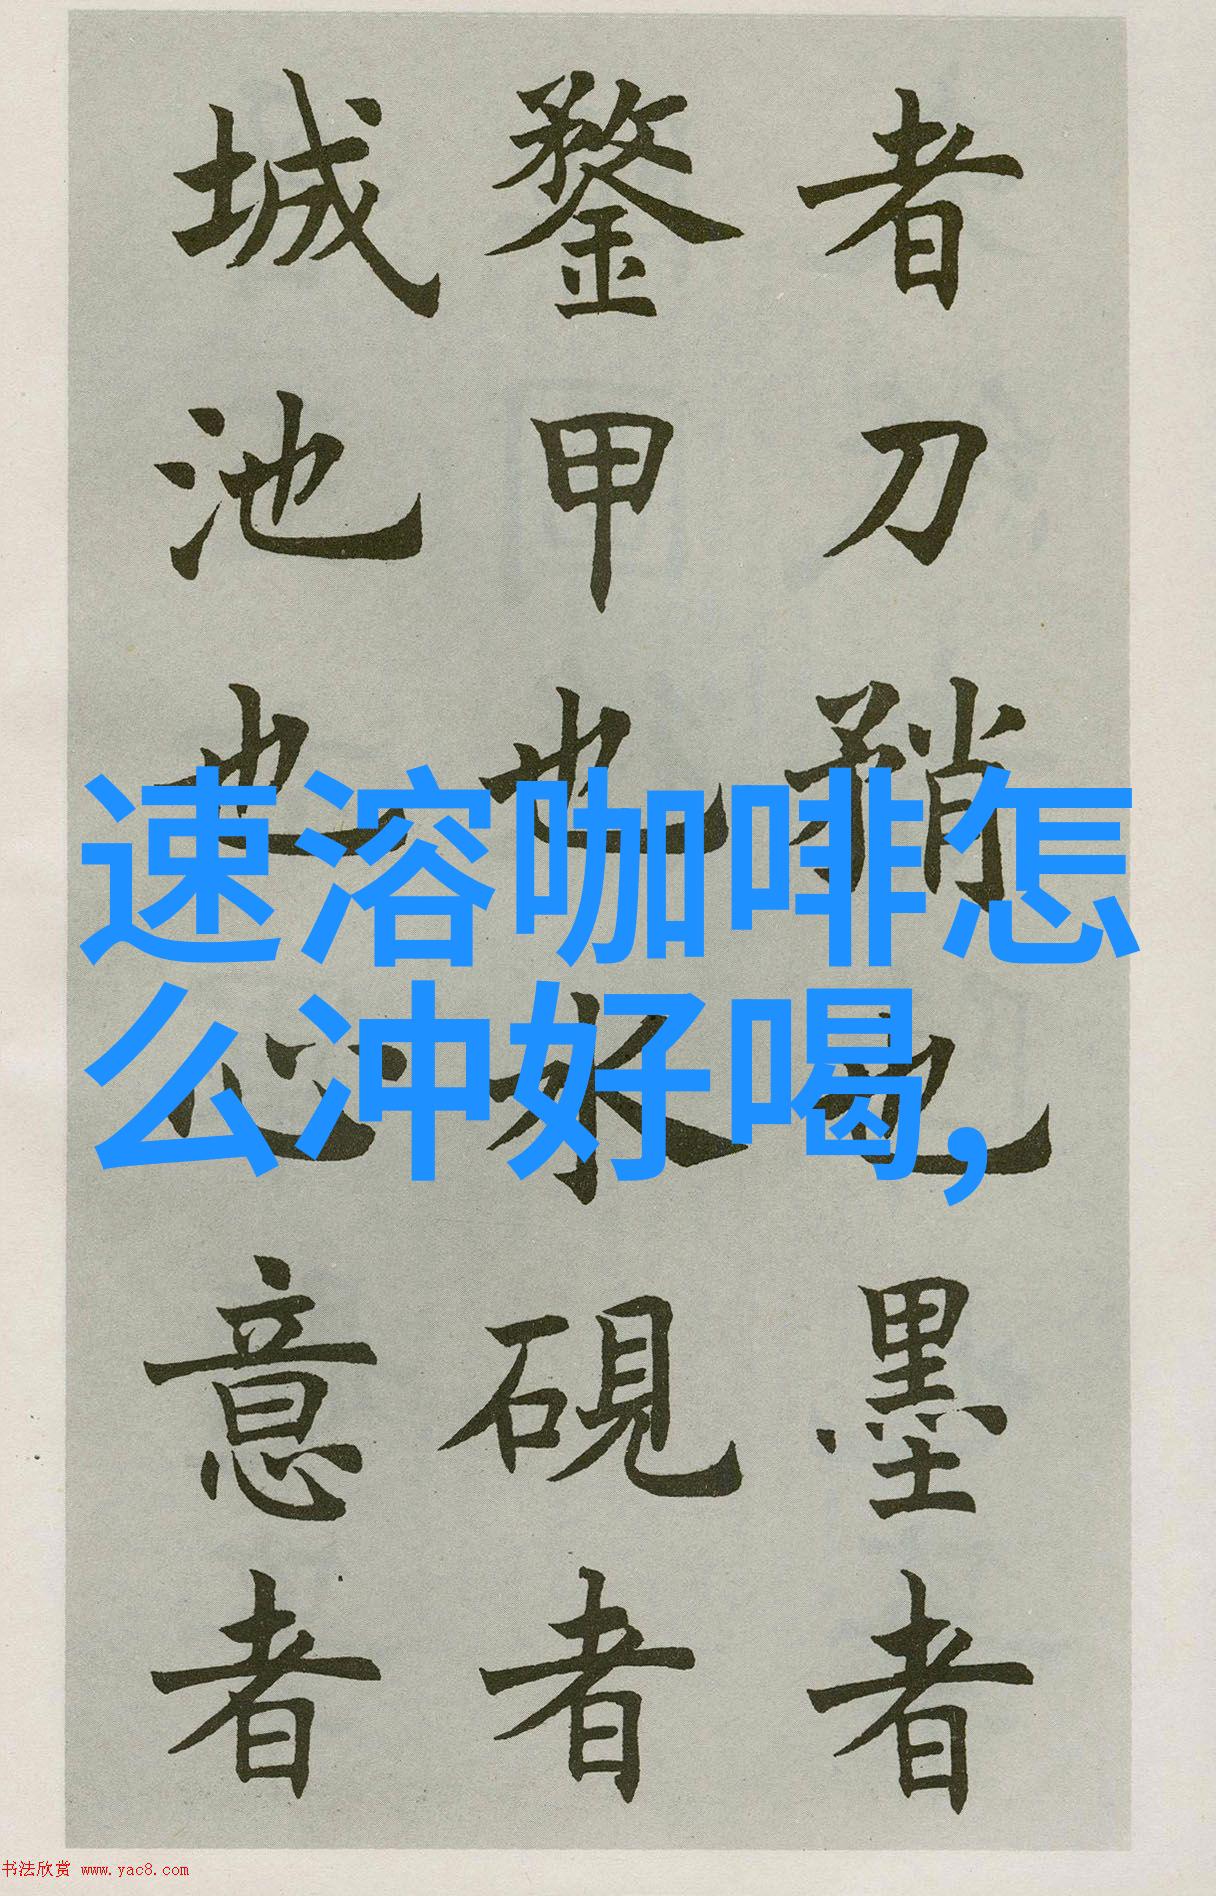 者刀矟也墨者
鍪甲也水硯者
城池也心意者
速溶咖啡怎
么冲好喝,
书法欣赏 www.yac8.com